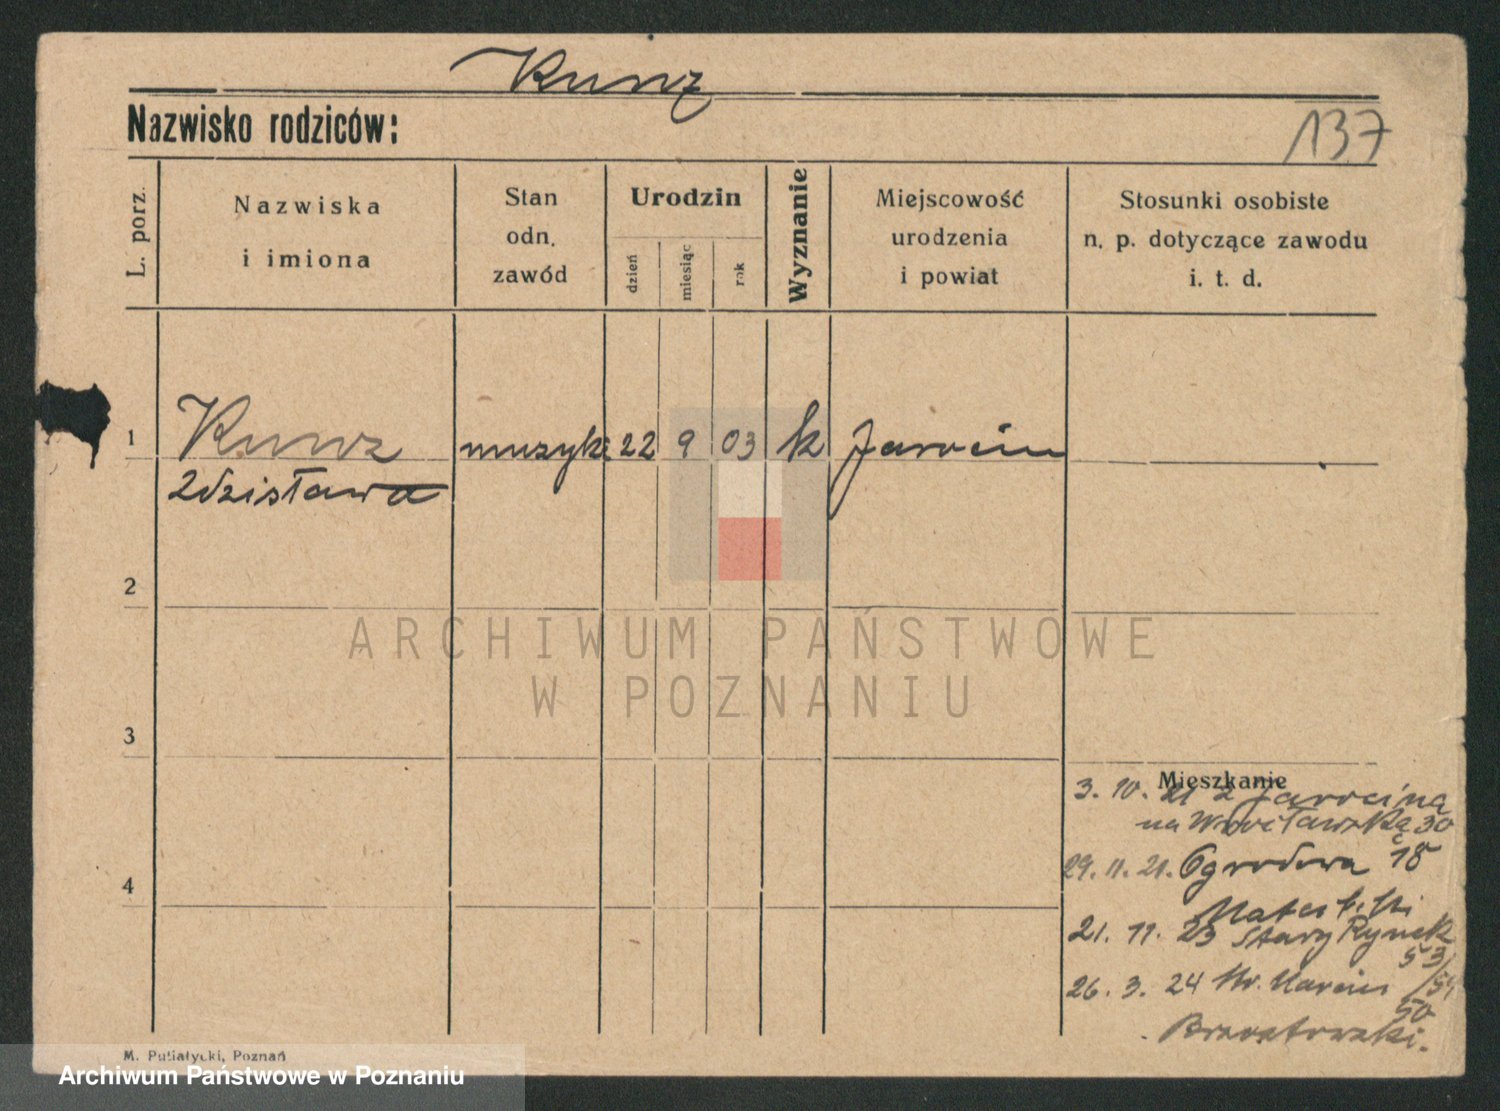 Kunz
Nazwisko rodziców:
137
L. porz.
Nazwiska
i imiona
Stan
odn.
zawód
Urodzin
dzień
miesiąc
rok
Wyznanie
Miejscowość
urodzenia
i powiat
Stosunki osobiste
n. p. dotyczące zawodu
i. t. d.
1
Kunz
muzyk 22 9 03 k Jarocin
Zdzisława
2
ARCHIWUM PAŃSTWOWE
W POZNANIU
3
Mieszkanie
3. 10. 21 z Jarocina
na Wrocławską 30
29. 11. 21. Ogrodowa 18
4
21. 11. 23 Stary Rynek
53/54
26. 3. 24 Św. Marcin
50
M. Putiatycki, Poznań
Archiwum Państwowe w Poznaniu